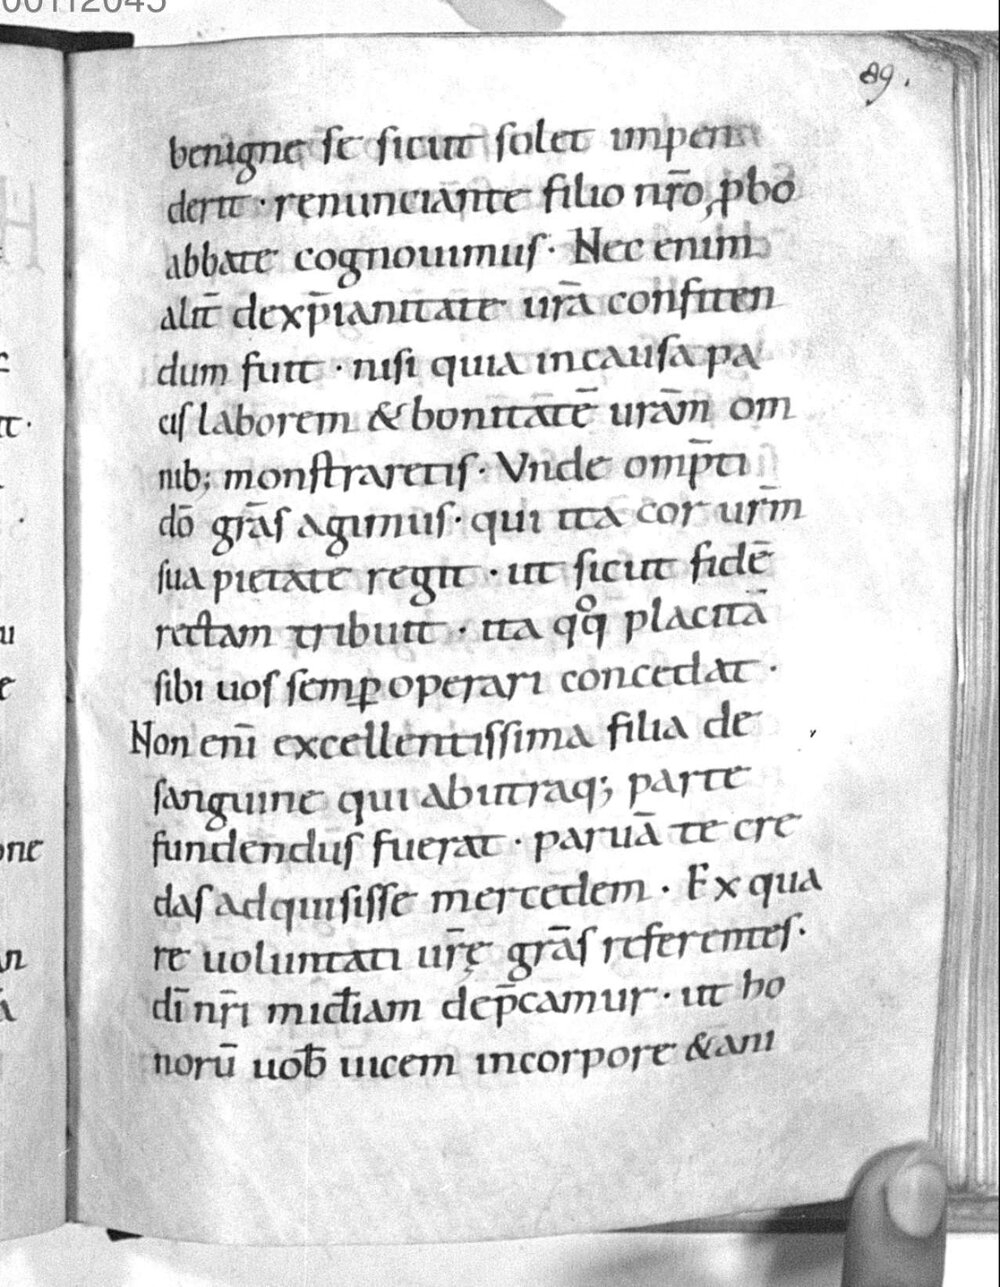 89.
benigne se sicut solet impen
derit · renunciante filio nr̄o, pbō
abbate cognouimus · Nec enim
alit̄ dexp̄ianitate ur̄a confiten
dum fuit · nisi quia incausa pa
cis laborem & bonitatē urām om
nib; monstraretis · Vnde omp̄ti
dō grās agimus · qui ita cor urm̄
sua pietate regit · ut sicut fidē
rectam tribuit · ita qͦq placitā
sibi uos semꝑ operari concedat ·
Non enī excellentissima filia de
sanguine qui abutraq; parte
fundendus fuerat · paruā te cre
das adquisisse mercedem · Ex qua
re uoluntati ur̄ę grās referentes ·
dī nr̄i miđiam dep̄camur · ut bo
norū uob̄ uicem incorpore & ani
ne